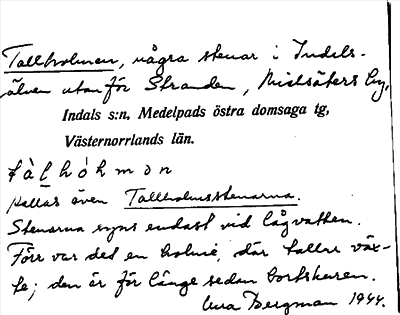 Tallholmen, några stenar i Indals-
älven utanför Stranden, Nichsäters by,
Indals s:n, Medelpads östra domsaga tg,
Västernorrlands län.
tàḷhòḷmən
kallas även Tallholmsstenarna.
Stenarna syns endast vid lågvatten.
Förr var det en holme, där tallar väx-
te; den är för länge sedan bortskuren.
Bergman 1944.